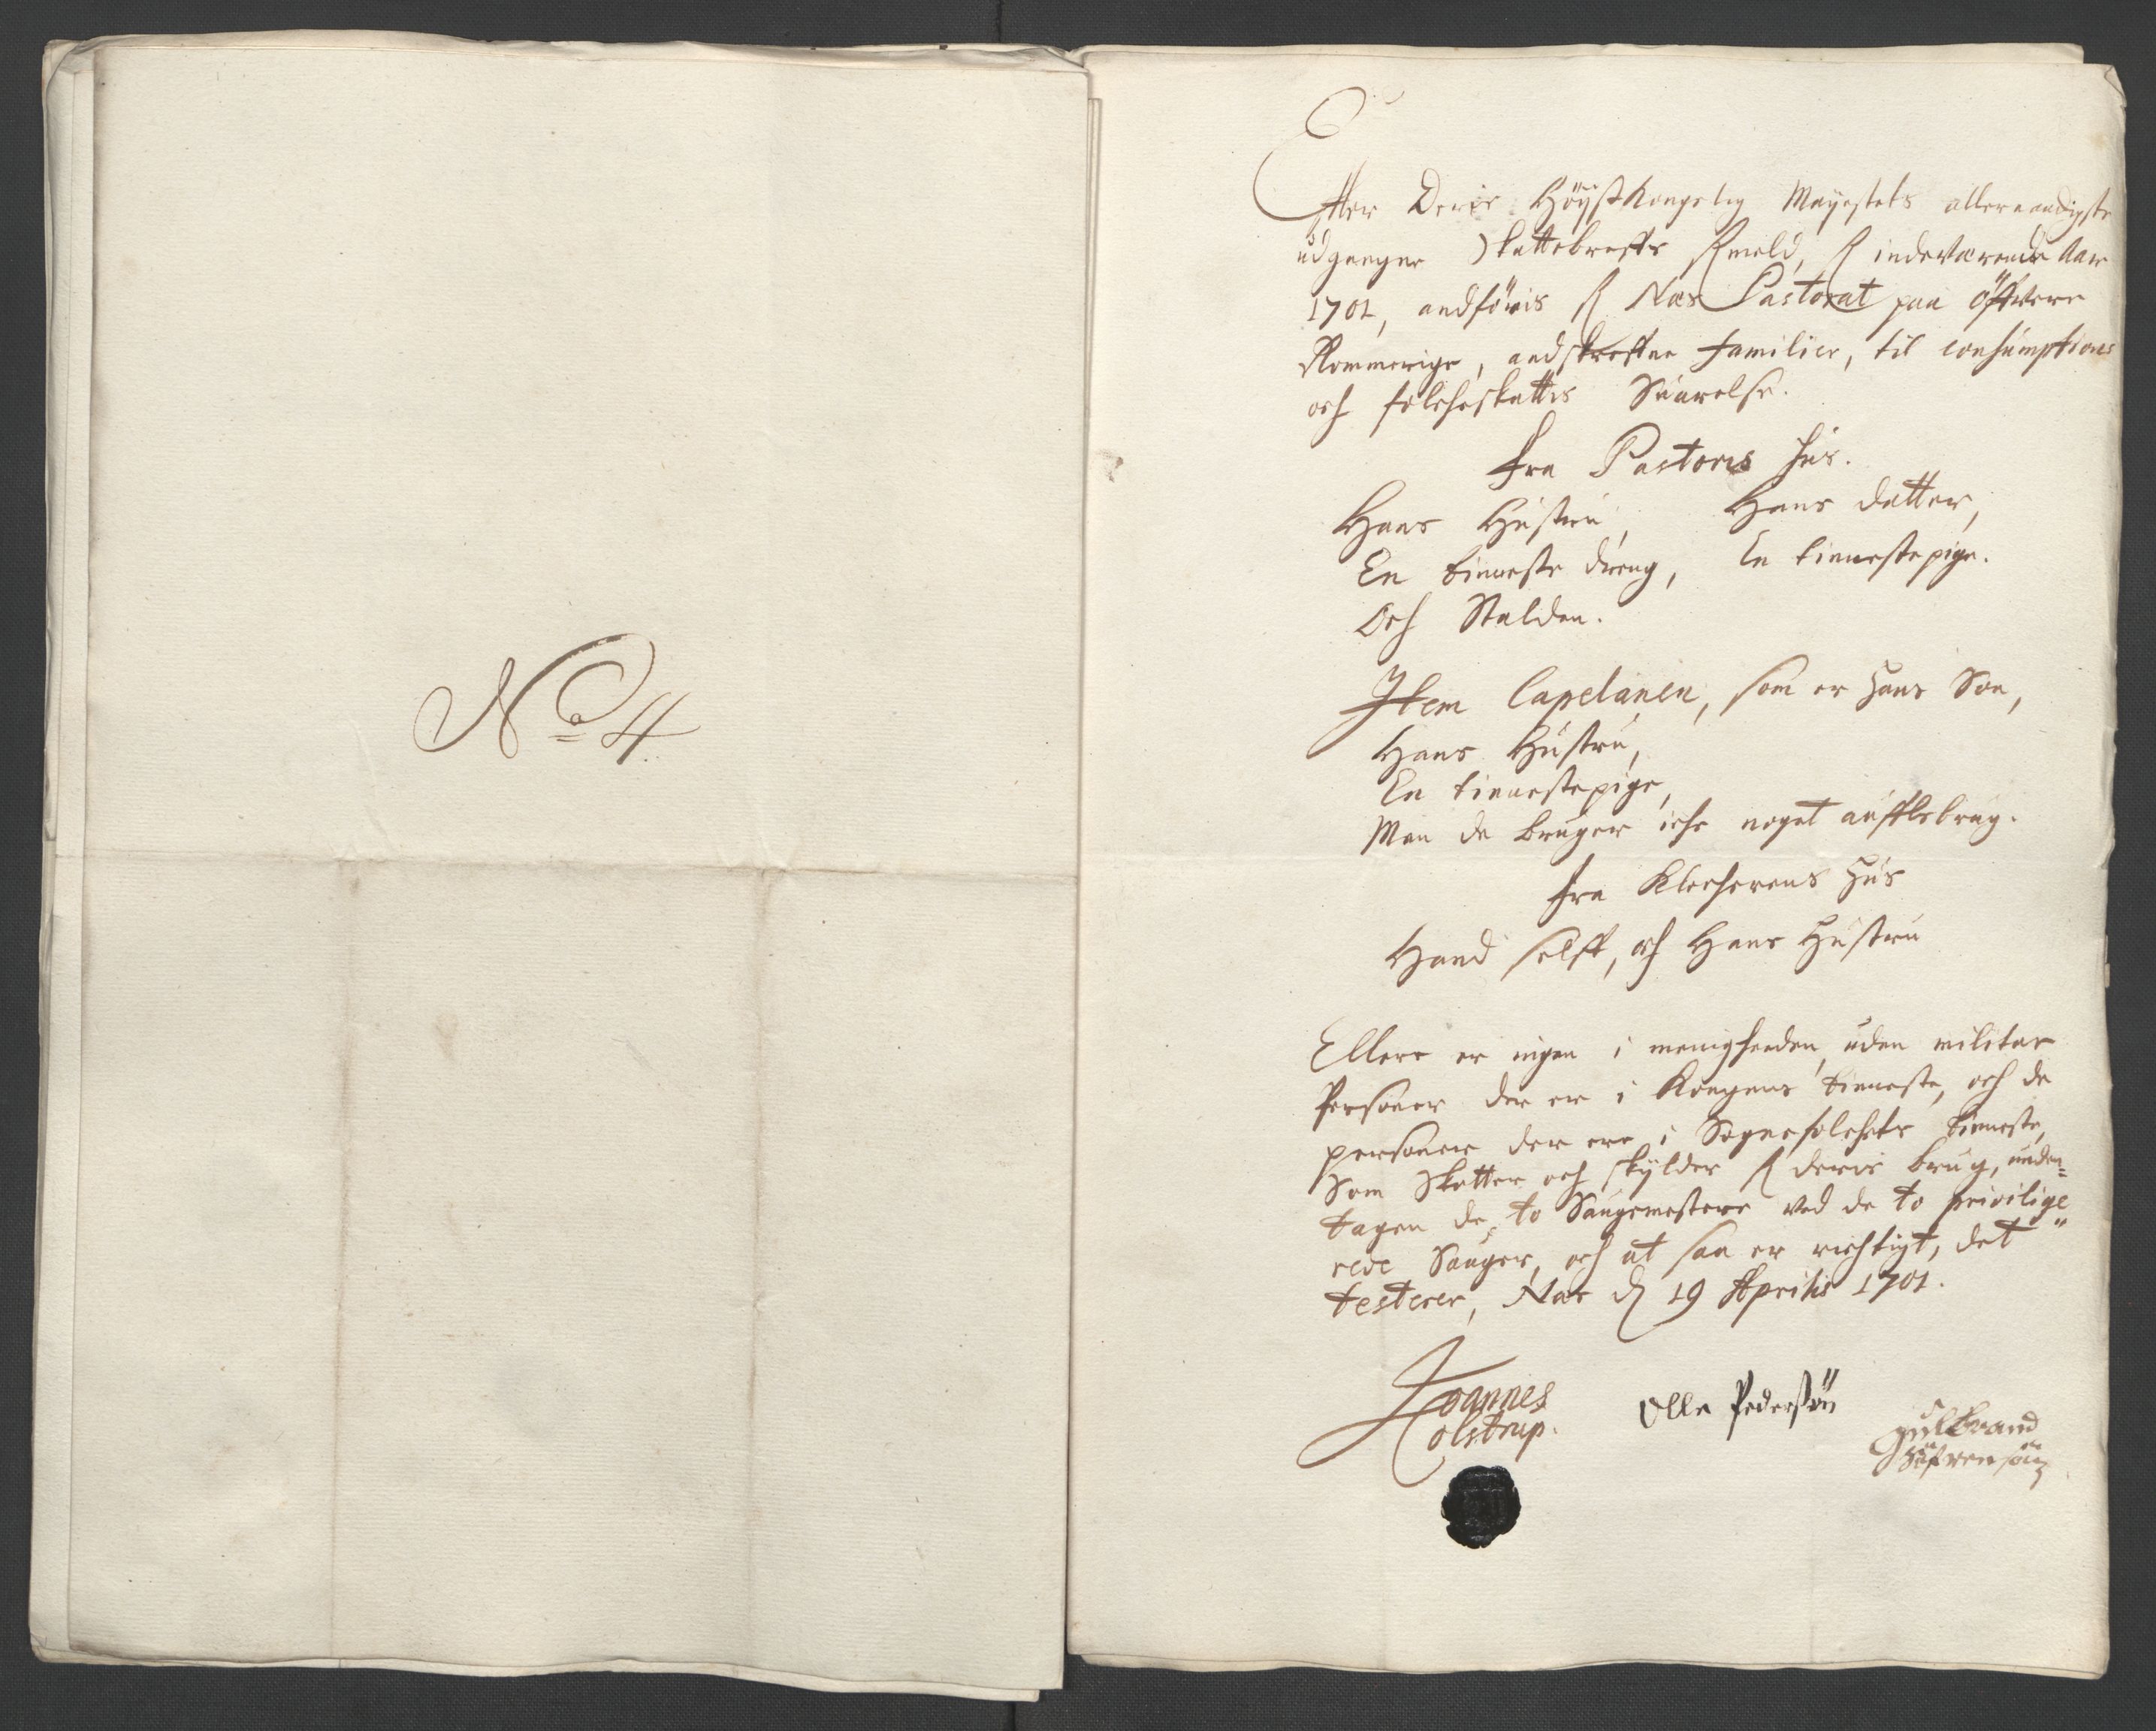 No 4.
Effter Deris Höyst Kongelig Mayestets allernaadigste
udgangne Skattebreffs formeld, for indeværende Aar
1701, andföris for Næs Pastorat paa öffvere
Rommerige, andskrefne familier, til consumptions
och folcheskattis Suarelse.
Fra Pastoris hus.
Hans Hustru, Hans datter,
En tieneste dreng, En tienestepige.
Och Stalden.
Item Capelanen, som er Hans Søn,
Hans Hustru,
En tienestepige,
Men de bruger iche noget aufflsbrug.
Fra Klocherens Hus
Hand selff, och Hans Hustru
Ellers er ingen i menigheeden uden militar
Personer der er i Kongens tieneste, och de
personer der ere i Sognefolchets tieneste,
Som Skatter och skylder for deris brug, unden=
tagen de to Saugemestere ved de to privilige
rede Sauger, och at saa er richtigt, det
testerer, Næs d 19 Aprilis 1701.
Joannes
Colstrup.
Olle Pedersøn
Gulbrand
Süfrensøn